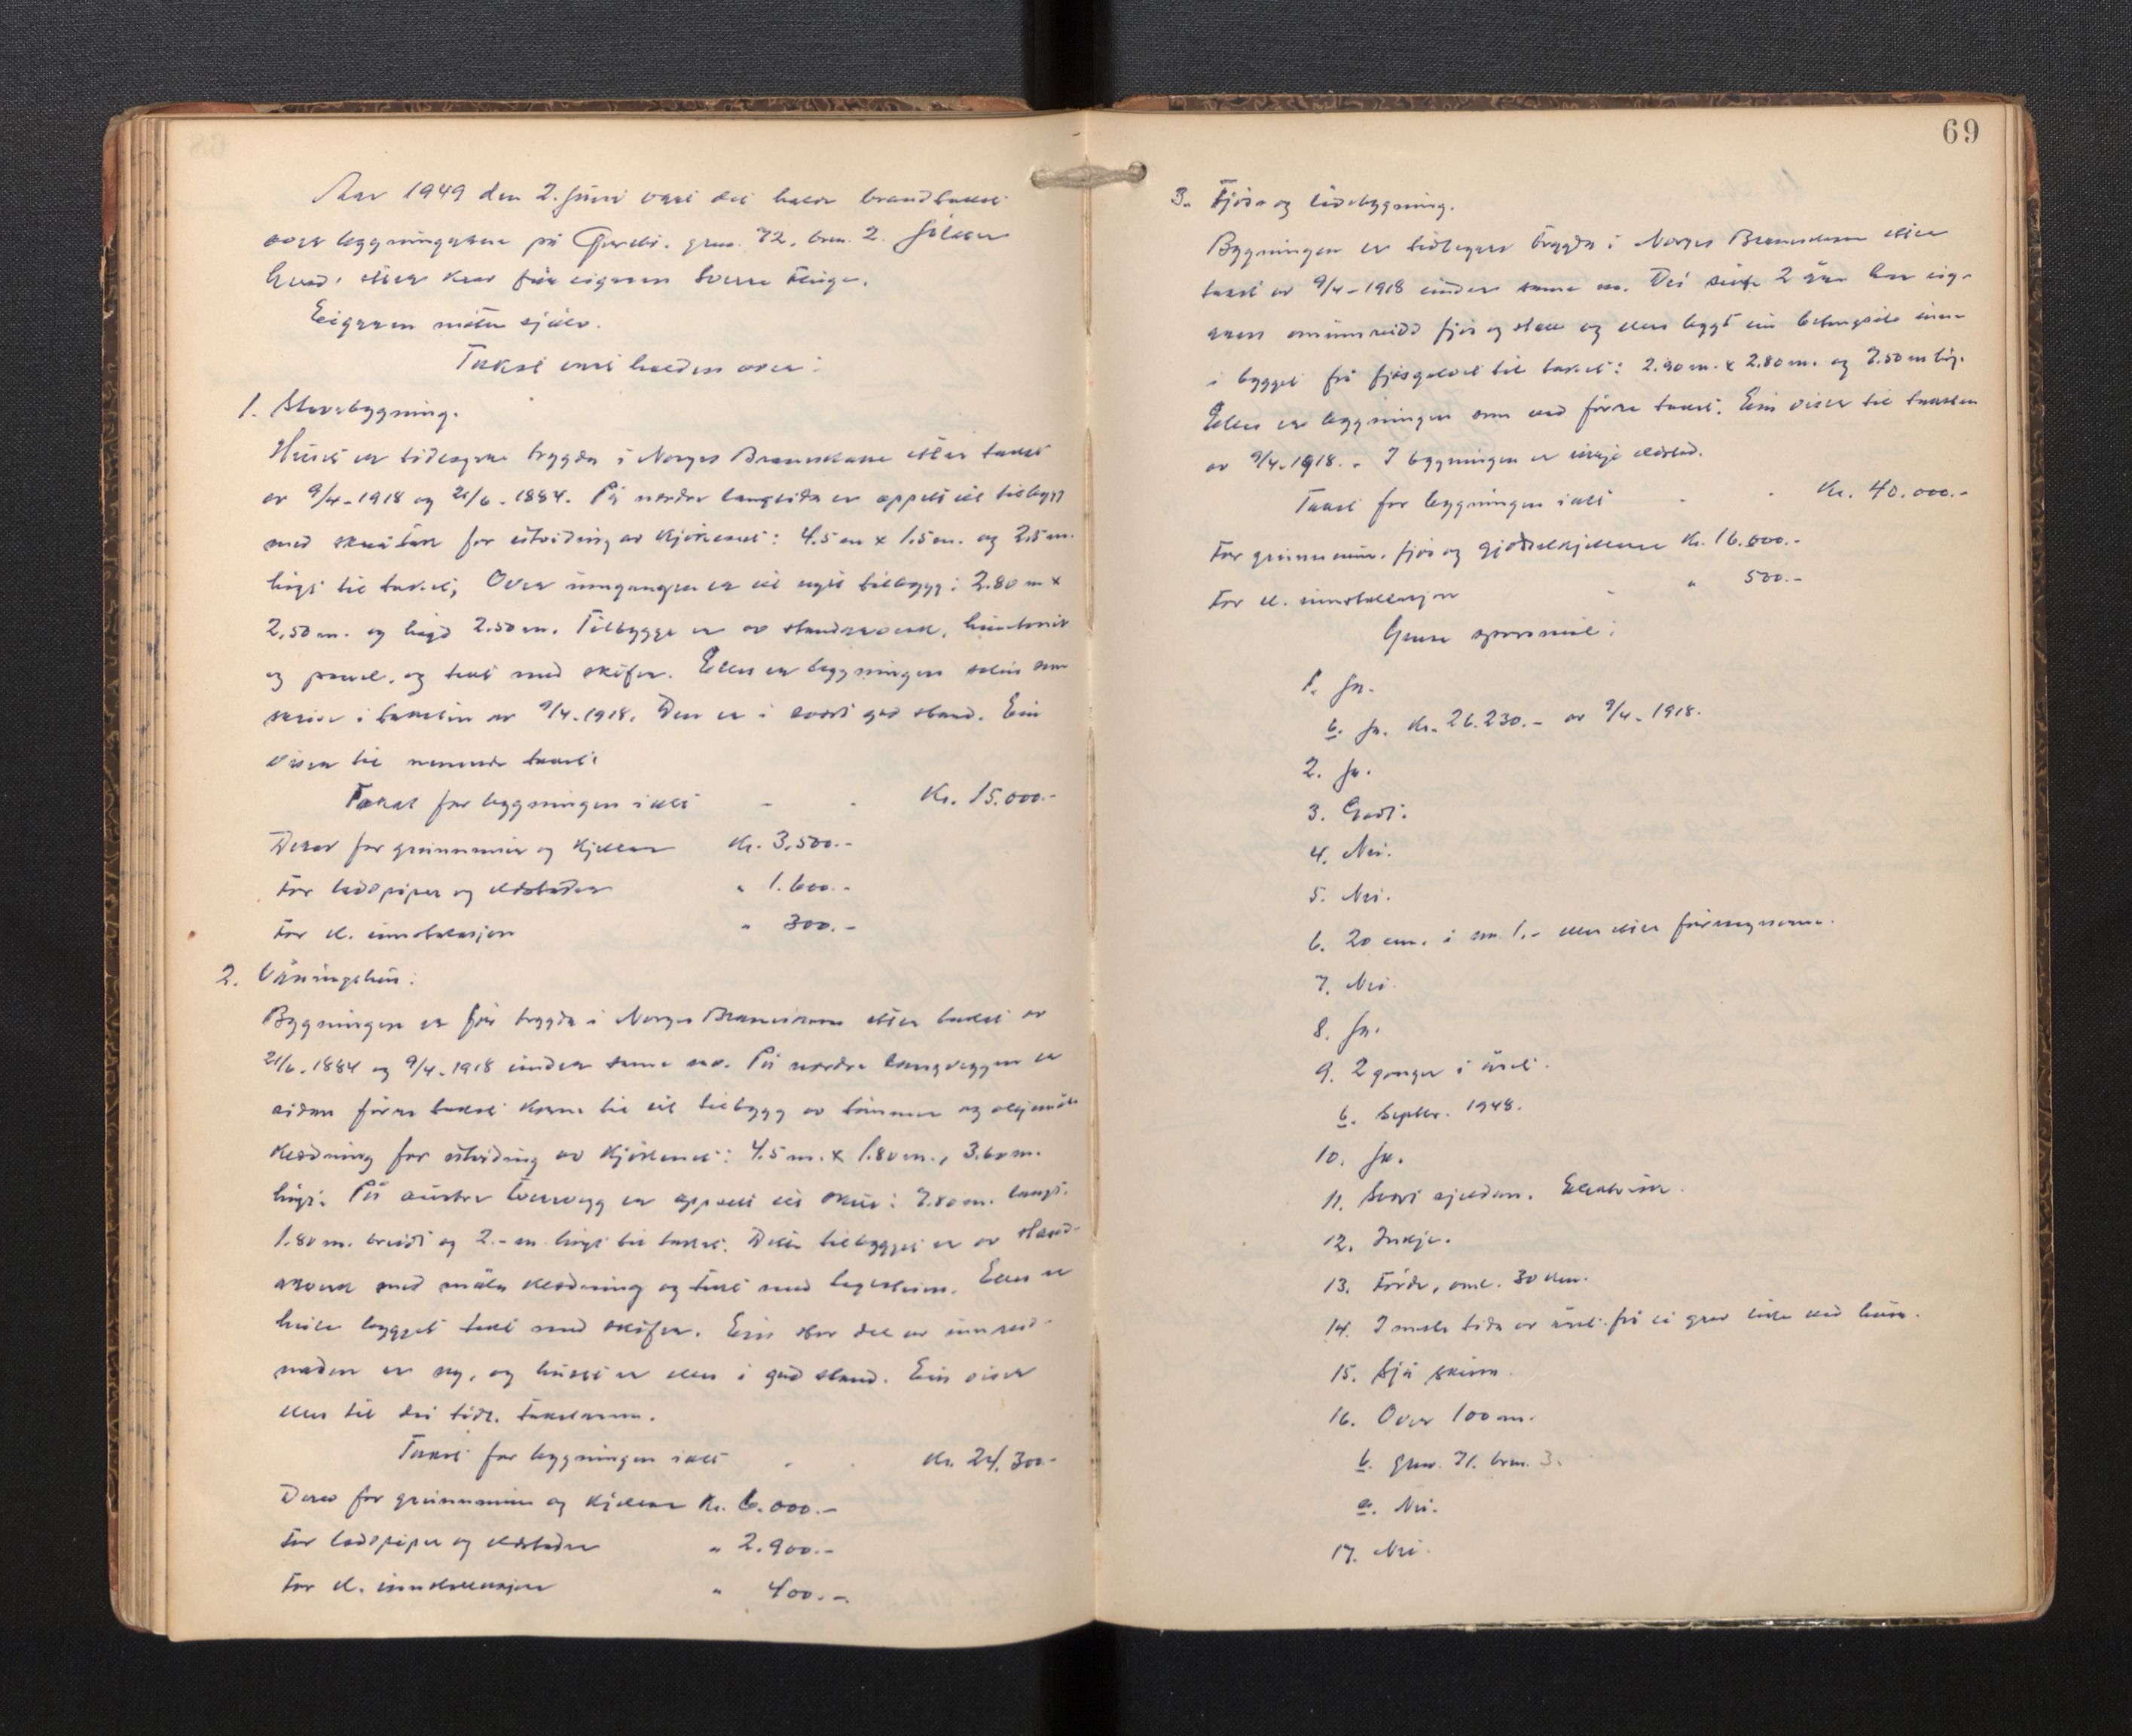 Aar 1949 den 2. juni vart det halde brandtakst
over bygningane på gnr. 72, brn. 2. Jølster
herad, etter krav frå eigaren Sverre
Eigaren møtte sjølv.
Takst vart halden over:
1. Stovebygning.
Huset er tidlegare trygda i Norges Brannkasse etter takst
av 9/4-1918 og 21/6-1884. På nordre langsida er oppsett eit tilbygg
med skråtak for utviding av kjøkenet: 4.5 m x 1.5 m. og 2.5 m.
høgt til taket, Over inngangen er eit nytt tilbygg: 2.80 m x
2.50 m. og høgd 2.50 m. Tilbygget er av standarverk,
og panel, og tekt med skifer. Elles er bygningen solid som
skrive i taksten av 9/4-1918. Den er i svært god stand. Ein
viser til nemnde takst.
Takst for bygningen i alt - - Kr. 15.000.-
Derav for grunnmur og kjellar Kr. 3.500.-
For ladepiper og eldstader " 1.600.-
For el. innstalasjon " 300.-
2. Våningshus:
Bygningen er før trygda i Norges Brannkasse etter takst av
21/6-1884 og 9/4-1918 under same nr. På nordre langveggen er
sidan førre takst kome til eit tilbygg av tømmer og oljemåla
kledning for utviding av kjøkenet: 4.5 m. x 1.80 m., 3.60 m.
høgt. På austre tverrvegg er oppsett eit skur: 7.80 m. langt.
1.80 m. breidt og 2.- m høgt til taket. Dette tilbygget er av stand-
arverk med måla kledning og tekt med Elles er
heile bygget tekt med skifer. Ein stor del av innreid-
naden er ny, og huset er elles i god stand. Ein viser
elles til dei tidl. takstane.
Takst for bygningen i alt - - Kr. 24.300.-
Derav for grunnmur og kjellar Kr. 6.000.-
For ladepiper og eldstader " 2.900.-
For el. innstallasjon " 400.-
69
3. Fjøs og lødebygning.
Bygningen er tidlegare trygda i Norges Brannkasse etter
takst av 9/4-1918 under same nr. Dei siste 2 åra har eig-
aren ominnreidd fjøs og stall og elles bygt ein betongsilo inne
i bygget frå fjøsgolvet til taket: 2.90 m. x 2.80 m. og 7.50 m høg.
Elles er bygningen som ved førre takst. Ein viser til taksten
av 9/4-1918. - I bygningen er inkje eldstad.
Takst for bygningen i alt - - Kr. 40.000.-
For grunnmur, fjøs og gjødselkjellar Kr. 16.000.-
For el. innstallasjon - " 500.-
spørsmål:
1. Ja.
b. Ja. Kr. 26.230.- av 9/4-1918.
2. Ja.
3. Godt.
4. Nei.
5. Nei.
6. 20 cm. i nr. 1.- elles etter føresegnene.
7. Nei.
8. Ja.
9. 2 gonger i året.
b. Septbr. 1948.
10. Ja.
11. Svært sjeldan. Elektrisk.
12. Inkje.
13. Førde, oml. 30 km.
14. I meste tida av året frå ei grov like ved husa.
15. Sjå skissa
16. Over 100 m.
b. gnr. 71. brn. 3.
c. Nei.
17. Nei.